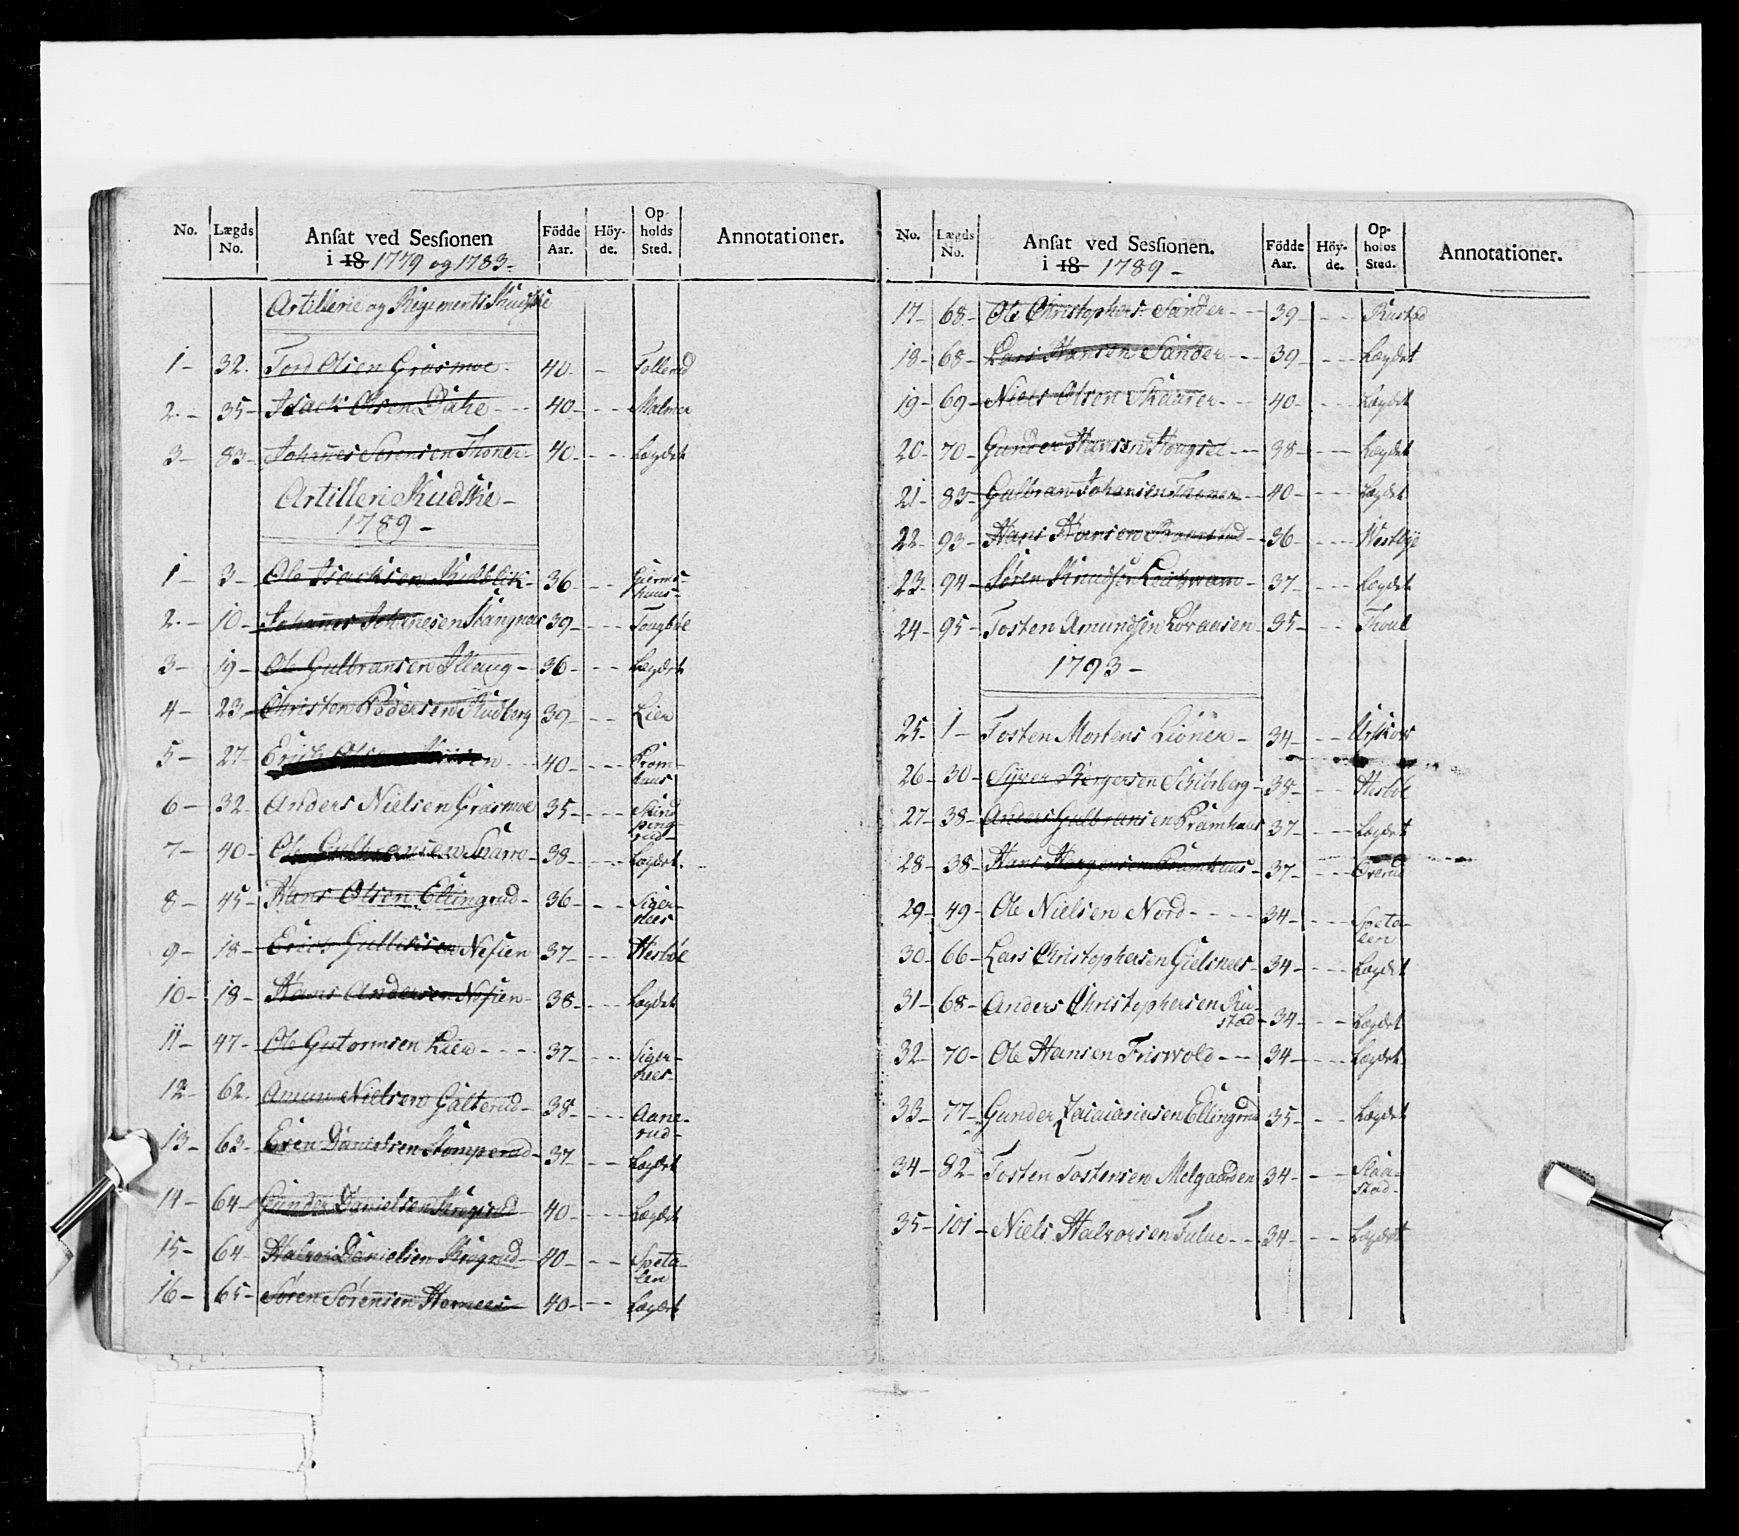 No. Lægds No. Ansat ved Sessionen i 18 1779 og 1783 - Födde Aar. Höyde. Opholds Sted. Annotationer.
Artillerie og Regiments Kudske
1 - 32. Tord Olsen Grasmoe - 40 - - Tollerud
2. - 35 - Isack Olsen Dahe - - - 40 - - - Malmer
3 - 83 - Johannes Sörensen Thoner - 40 - - - Lægdet
Artilleri Kudske -
1789 -
1 - 3 - Ole Isacksen - 36 - - -
2. - 10 - Johannes Johannesen Kangnæs 39 - - - Tongböe
3 - 19 - Ole Gulbransen Illaug - 36 - - - Lægdet
4 - 23 - Christen Pedersen Kudberg 39 - - - Lier
5 - 27 - Erich Olsen - - 40 - - - Krom-
haus
6 - 32 - Anders Nielsen Grasmoe 35 - - - Skind
pung
rud -
7 - 40 - Ole Gulbransen Snarro - 38 - - - Lægdet.
8 - 45 - Hans Olsen Ellingrud - 36 - - - Siger-
næs
9 - 18 - Nesien 37 - - - Hesböe
10 - 18 - Hans Andersen Nesien - 38 - - - Lægdet
11 - 47 - Ole Gutormsen Lier - - - - 37 - - - Siger-
næs -
12 - 62. Amun Nielsen Galterud - 38 - - - Aane-
rud -
13 - 63 - Even Danielsen Komperud - 37 - - Lægdet
14 - 64 - Gunder Danielsen Krogrud - 40 - - - Lægdet
15 - 64 - Halvor Danielsen Krogrud - 40 - - - Speta-
len
16 - 65 - Sören Sörensen Hornees - 40 - - - Lægdet
No. Lægds No. Ansat ved Sessionen. i 18 1789 - Födde Aar. Höyde. Opholds Sted. Annotationer.
17 - 68 - Ole Christophers: Sander - - - 39 - - - Rustad
18 - 68 - Lars Hansen Sander - - - 39 - - - Lægdet
19 - 69 - Niels Olsen Skaarer - - - 40 - - - Lægdet
20 - 70 - Gunder Hansen Hougset - - 38 - - - Lægdet
21 - 83 - Gulbran Johansen Thonen - - 40 - - - Lægdet
22 - 93 - Hans Hansen - - 36 - - - Westbye
23 - 94 - Sören Knudsen - 37 - - - Lægdet
24 - 95 - Tosten Amundsen Lövaasen - 35 - - - Thoul
1793 -
25 - 1 - Tosten Mortens Liöner - 34 - - - Urskov
26 - 30 - Syver Börgersen Schiörberg - 38 - - - Hesböe
27 - 38 - Anders Gulbransen Kramhaus 37 - - - Lægdet
28 - 38 - Hans Kramhaus - 37 - - - Overud
29 - 49 - Ole Nielsen Nord - - - - 34 - - - Speta-
len
30 - 66 - Lars Christophersen Gielsnees - 34 - - - Lægdet
31 - 68 - Anders Christophersen Ru-
stad - 34 - - - Lægdet
32 - 70 - Ole Hansen Friswold - - - 34 - - - Lægdet
33 - 77 - Gunder Zacariasen Ellingrud 35 - - - Lægdet
34 - 82 - Tosten Tostensen Melgaarden 34 - - - Staa-
stad -
35 - 101 - Niels Halvorsen Tulue - - 34 - - - Lægdet